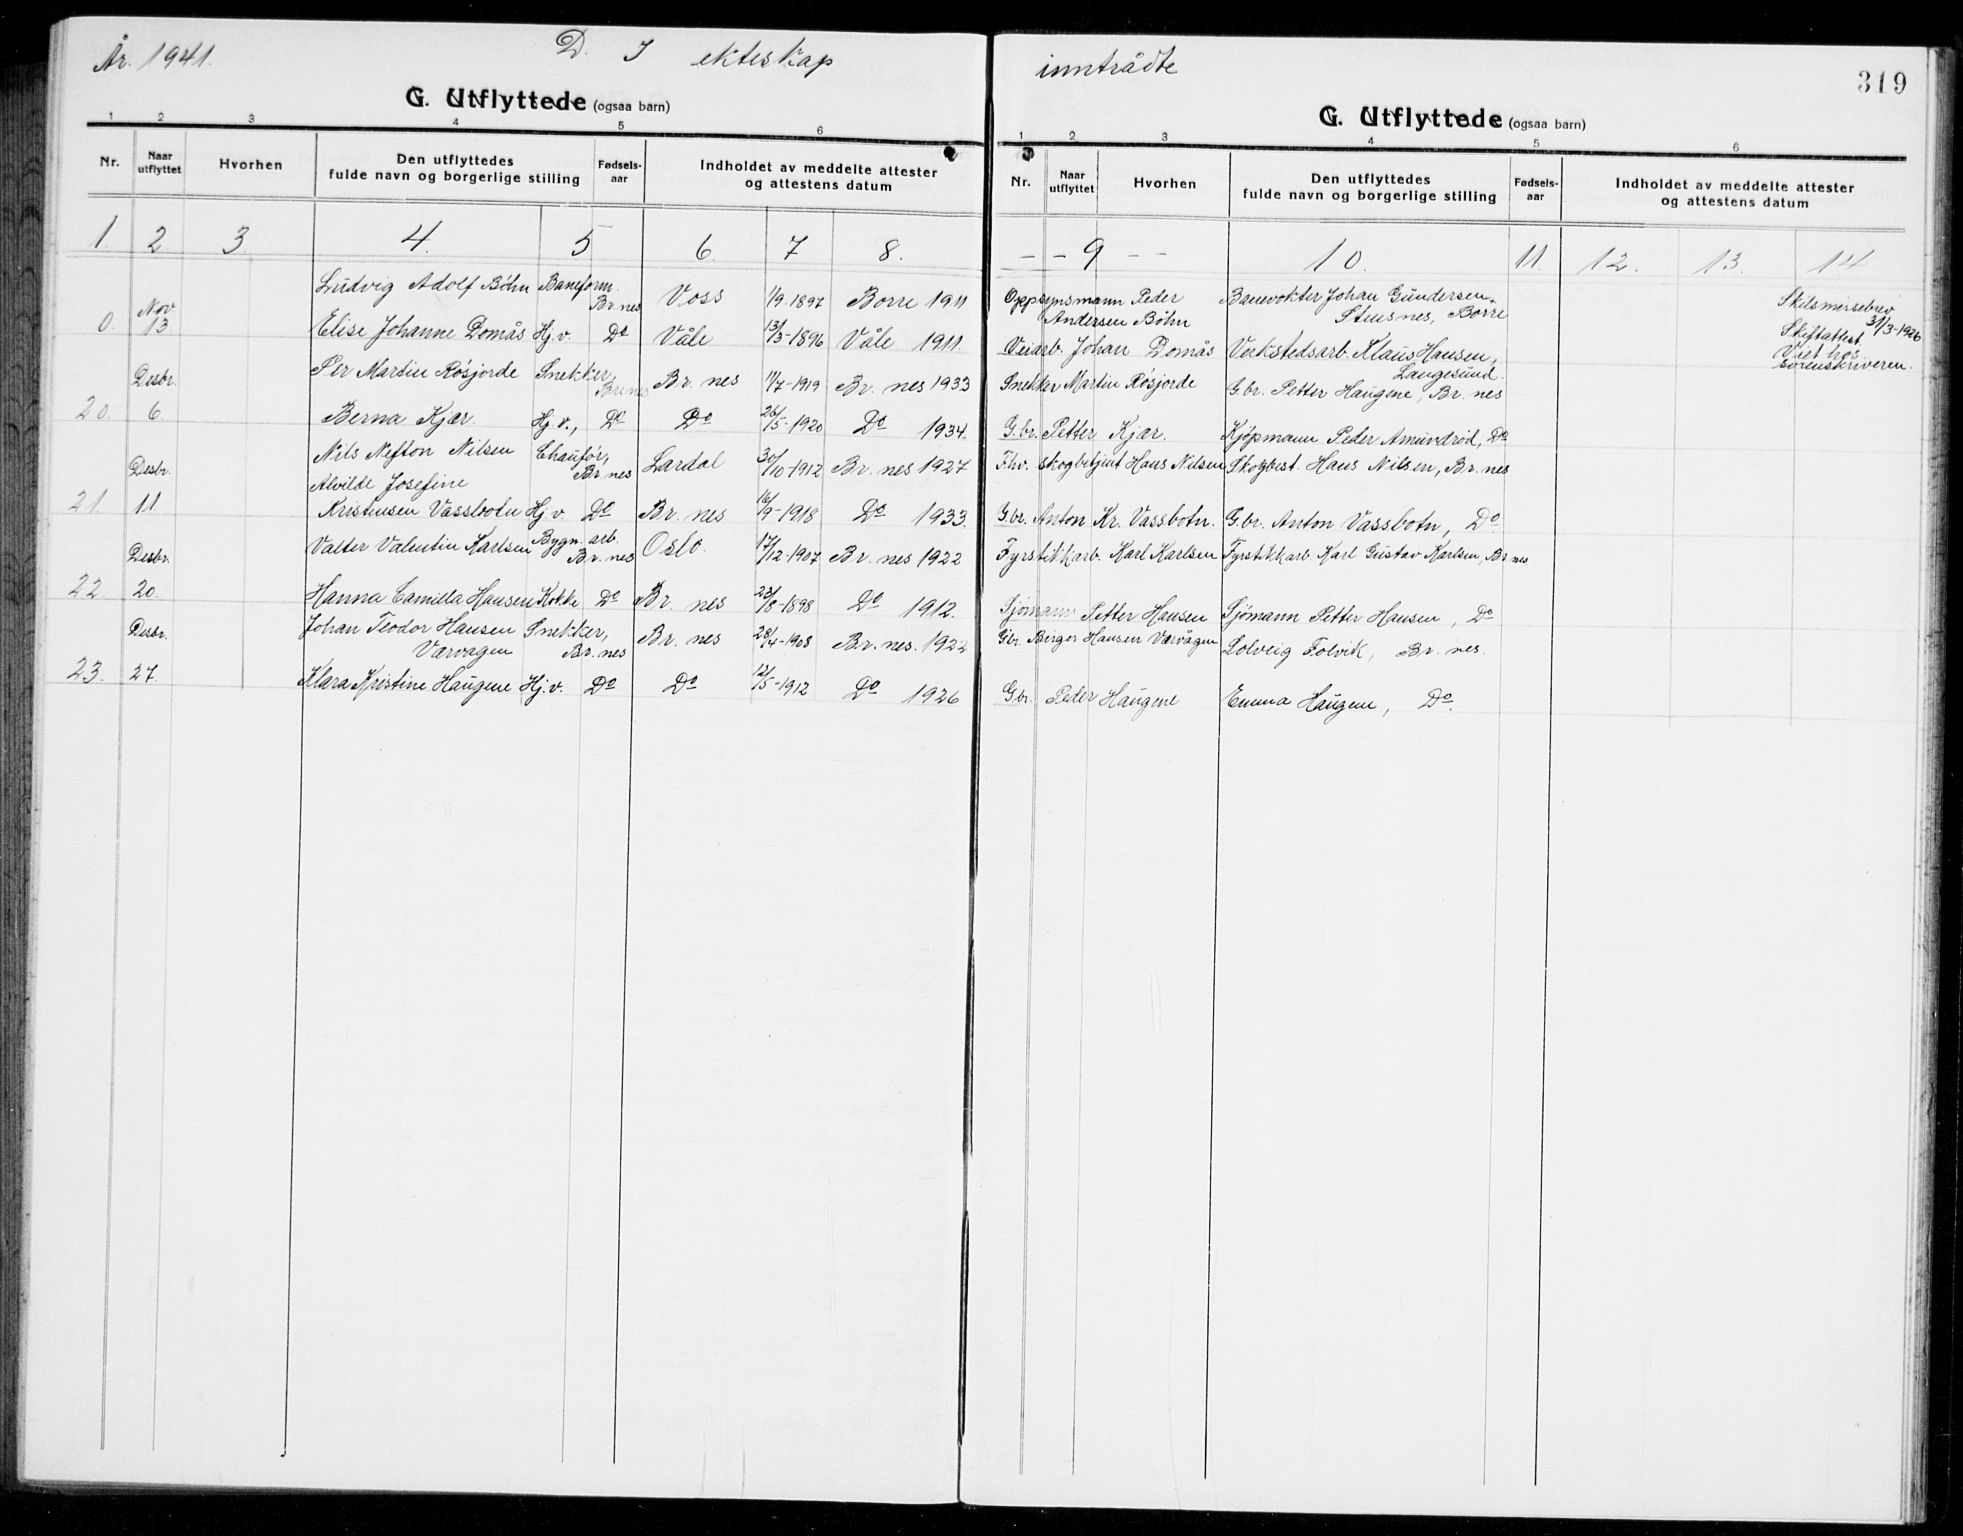 År. 1941. D. I ekteskap inntrådte
319
G. Utflyttede (ogsaa barn)
1 2 3 4 5 6
Nr. Naar utflyttet Hvorhen Den utflyttedes fulde navn og borgerlige stilling Fødsels-aar Indholdet av meddelte attester og attestens datum
G. Utflyttede (ogsaa barn)
1 2 3 4 5 6
Nr. Naar utflyttet Hvorhen Den utflyttedes fulde navn og borgerlige stilling Fødsels-aar Indholdet av meddelte attester og attestens datum
1. 2. 3. 4. 5 6. 7 8. - - 9 - - 10. 11. 12. 13. 14
Ludvig Adolf Böhn Baneform. Br.nes Voss 1/9-1897 Borre 1911 Oppsynsmann Peder Andersen Böhn Banevokter Johan Gundersen, Borre Skilsmissebrev 31/3-1926
0. Nov. 13 Elise Johanne Domås Hj.v. Do Våle 13/3-1896 Våle 1911. Veiarb. Johan Domås Verkstedsarb. Klaus Hansen, Langesund. Skiftattest. Viet hos sorenskriveren.
Desbr. Per Martin Røsjorde Snekker, Br.nes Br. nes 11/7-1919 Br. nes 1933 Snekker Martin Røsjorde G.br. Petter Haugene, Br. nes
20. 6. Berna Kjær Hj.v., Do Do 26/5-1920 Do 1934. G.br. Petter Kjær. Kjøpmann Peder Amundrød, Do
Desbr. Nils Nefton Nilsen Chaufør, Br.nes Lardal 30/10-1912 Br. nes 1927 Fhv. skogbetjent Hans Nilsen Skogbest. Hans Nilsen, Br. nes
Alvilde Josefine
21. 11. Kristensen Vassbotn Hj.v. Do Br. nes 16/9-1918 Do 1933. G.br. Anton Kr. Vassbotn. G.br. Anton Vassbotn, Do
Desbr. Valter Valentin Karlsen Bygn. arb. Br. nes Oslo. 17/12-1907 Br. nes 1922 Fyrstikkarb. Karl Karlsen Fyrstikkarb. Karl Gustav Karlsen, Br. nes
22 20. Hanna Camilla Hansen Kokke Do Br. nes 23/8-1898 Do 1912. Sjømann Petter Hansen Sjømann Petter Hansen, Do
Desbr. Johan Teodor Hansen Værvagen Snekker, Br. nes Br. nes 28/4-1908 Br. nes. 1922 Gbr. Birger Hansen Værvågen Solveig Folvik, Br. nes.
23. 27. Klara Kristine Haugene Hj.v. Do Do 12/5-1912 Do 1926 G.br. Peder Haugene Emma Haugene, Do.